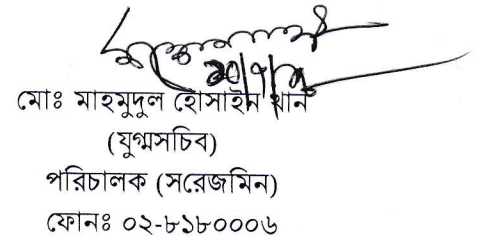 মোঃ মাহমুদুল হোসাইন খান
(যুগ্মসচিব)
পরিচালক (সরেজমিন)
ফোনঃ ০২-৮১৮০০০৬